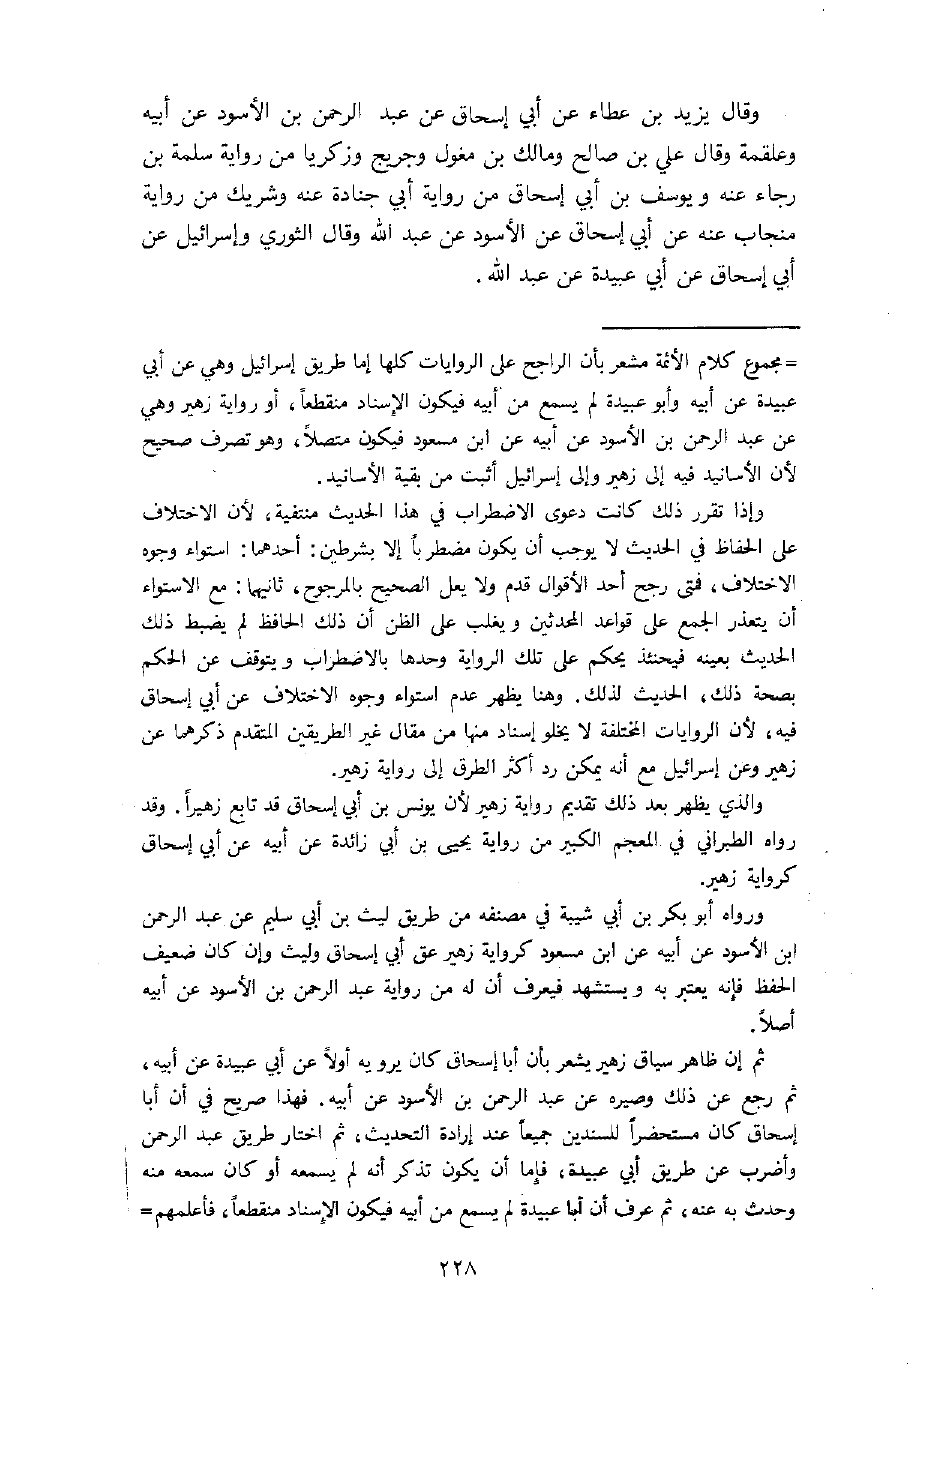 وقال يزيد بن عطاء عن أبي إسحاق عن عبد الرحمن بن الأسود عن أبيه
وعلقمة وقال علي بن صالح ومالك بن مغول وجريج وزكريا من رواية سلمة بن
رجاء عنه ويوسف بن أبي إسحاق من رواية أبي جنادة عنه وشريك من رواية
منجاب عنه عن أبي إسحاق عن الأسود عن عبد الله وقال الثوري وإسرائيل عن
أبي إسحاق عن أبي عبيدة عن عبد الله .
=مجموع كلام الأئمة مشعر بأن الراجح على الروايات كلها إما طريق إسرائيل وهي عن أبي
عبيدة عن أبيه وأبو عبيدة لم يسمع من أبيه فيكون الإسناد منقطعاً، أو رواية زهير وهي
عن عبد الرحمن بن الأسود عن أبيه عن ابن مسعود فيكون متصلاً، وهو تصرف صحيح
لأن الأسانيد فيه إلى زهير وإلى إسرائيل أثبت من بقية الأسانيد.
وإذا تقرر ذلك كانت دعوى الاضطراب في هذا الحديث منتفية، لأن الاختلاف
على الحفاظ في الحديث لا يوجب أن يكون مضطرباً إلا بشرطين: أحدهما: استواء وجوه
الاختلاف، فمتى رجح أحد الأقوال قدم ولا يعل الصحيح بالمرجوح، ثانيها: مع الاستواء
أن يتعذر الجمع على قواعد المحدثين ويغلب على الظن أن ذلك الحافظ لم يضبط ذلك
الحديث بعينه فحينئذ يحكم على تلك الرواية وحدها بالاضطراب ويتوقف عن الحكم
بصحة ذلك، الحديث لذلك. وهنا يظهر عدم استواء وجوه الاختلاف عن أبي إسحاق
فيه، لأن الروايات المختلفة لا يخلو إسناد منها من مقال غير الطريقين المتقدم ذكرهما عن
زهير وعن إسرائيل مع أنه يمكن رد أكثر الطرق إلى رواية زهير.
والذي يظهر بعد ذلك تقديم رواية زهير لأن يونس بن أبي إسحاق قد تابع زهيراً. وقد
رواه الطبراني في المعجم الكبير من رواية يحيى بن أبي زائدة عن أبيه عن أبي إسحاق
كرواية زهير.
ورواه أبو بكر بن أبي شيبة في مصنفه من طريق ليث بن أبي سليم عن عبد الرحمن
ابن الأسود عن أبيه عن ابن مسعود كرواية زهير عق أبي إسحاق وليث وإن كان ضعيف
الحفظ فإنه يعتبر به ويستشهد فيعرف أن له من رواية عبد الرحمن بن الأسود عن أبيه
أصلاً.
ثم إن ظاهر سياق زهير يشعر بأن أبا إسحاق كان يرويه أولاً عن أبي عبيدة عن أبيه،
ثم رجع عن ذلك وصيره عن عبد الرحمن بن الأسود عن أبيه. فهذا صريح في أن أبا
إسحاق كان مستحضراً للسندين جميعاً عند إرادة التحديث، ثم اختار طريق عبد الرحمن
وأضرب عن طريق أبي عبيدة، فإما أن يكون تذكر أنه لم يسمعه أو كان سمعه منه
وحدث به عنه، ثم عرف أن أبا عبيدة لم يسمع من أبيه فيكون الإسناد منقطعاً، فأعلمهم=
٢٢٨